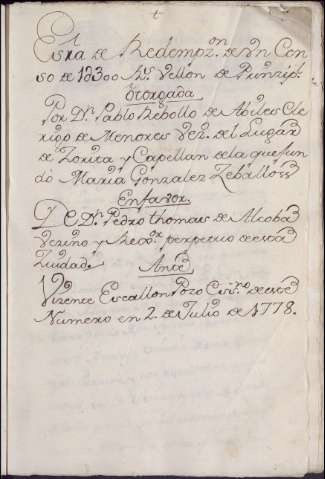 Essra de Redempon. de Vn Cen
so de 18300 Rs. Vellon de Prinzipl.
Otorgada
Por Dn. Pablo Rebollo de Cle
rigo de Menores Vezo. del Lugar
de Zorita y Capellan de la que fun
dó Maria Gonzalez Zeballos
Enfavor.
De Dn. Pedro thomas de Alcoba
Vezino y Rexor. perpetuo de esta
Ziudad.
Ante
Vizente Escallon Pozo de este
Numero en 2. de Julio de 1778.